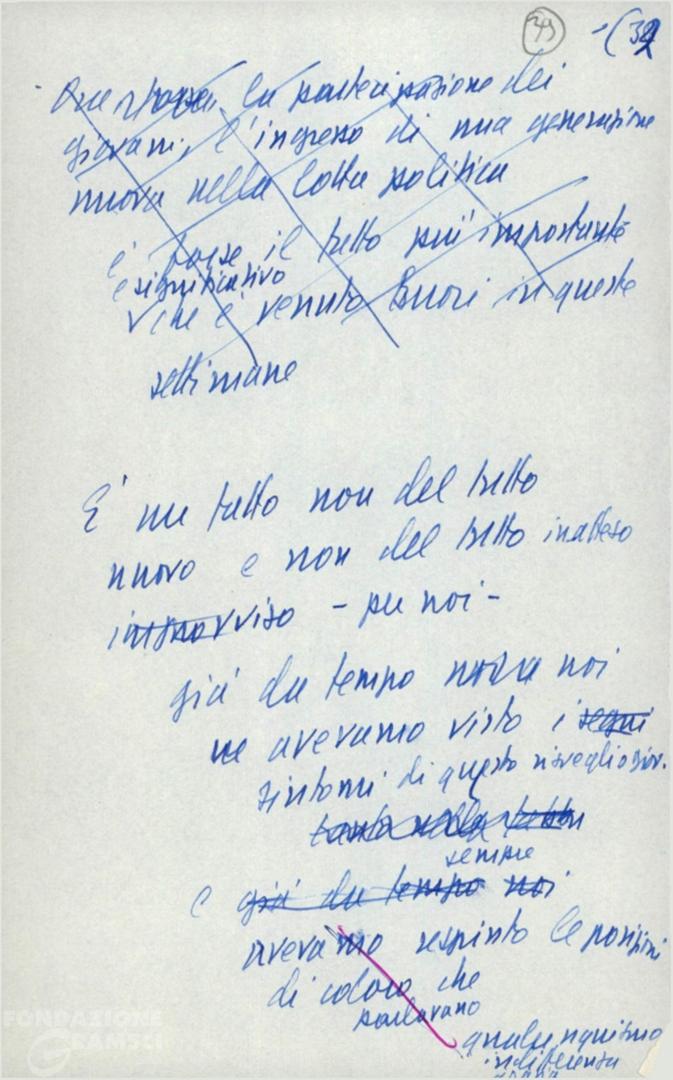 49 -(32
la partecipazione dei
giovani, l'ingresso di una generazione
nuova nella lotta politica
è forse il fatto più importante
e significativo
che è venuto fuori in queste
settimane
È un fatto non del tutto
nuovo e non del tutto inatteso
improvviso - per noi -
già da tempo noi
ne avevamo visto i segni
sintomi di questo risveglio giov.
sempre
e già da tempo noi
avevamo respinto le posizioni
di coloro che
parlavano
qualunquismo
indifferenza
FONDAZIONE
GRAMSCI